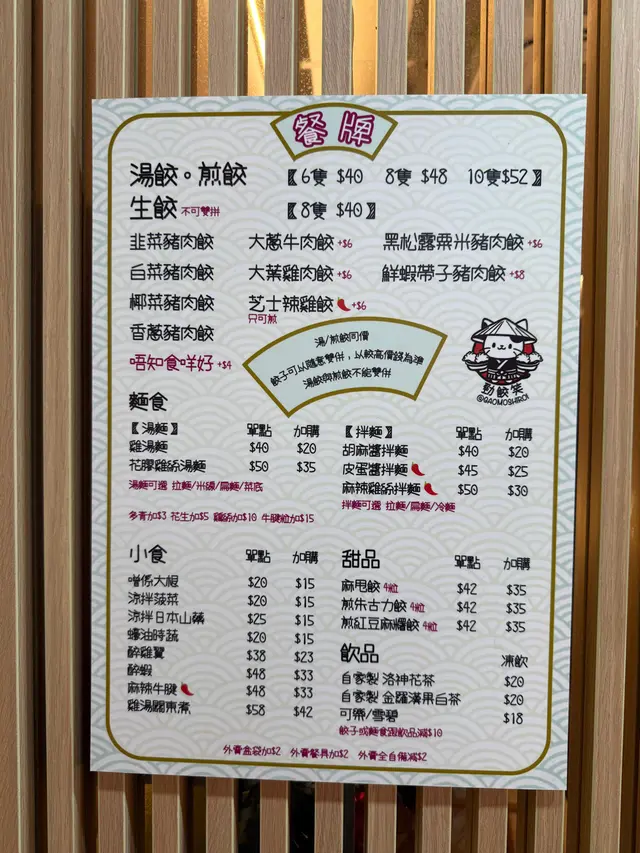 餐牌
湯餃。煎餃 【6隻 $40 8隻 $48 10隻$52】
生餃 不可雙拼 【8隻 $40】
韭菜豬肉餃 大蔥牛肉餃 +$6 黑松露粟米豬肉餃 +$6
白菜豬肉餃 大葉雞肉餃 +$6 鮮蝦帶子豬肉餃 +$8
椰菜豬肉餃 芝士辣雞餃 +$6
只可煎
香蔥豬肉餃
唔知食咩好 +$4
湯/煎餃同價
餃子可以隨意雙併,以較高價錢為準
湯餃與煎餃不能雙併
勁餃笑
@GAOMOSHIROI
麵食
【湯麵】 單點 加購
雞湯麵 $40 $20
花膠雞絲湯麵 $50 $35
湯麵可選 拉麵/米線/扁麵/菜底
多青加$3 花生加$5 雞絲加$10 牛腱粒加$15
【拌麵】 單點 加購
胡麻醬拌麵 $40 $20
皮蛋醬拌麵 $45 $25
麻辣雞絲拌麵 $50 $30
拌麵可選 拉麵/扁麵/冷麵
小食 單點 加購
噌係大根 $20 $15
涼拌菠菜 $20 $15
涼拌日本山藥 $25 $15
蠔油時蔬 $20 $15
醉雞翼 $38 $23
醉蝦 $48 $33
麻辣牛腱 $48 $33
雞湯關東煮 $58 $42
甜品 單點 加購
麻甩餃 4粒 $42 $35
煎朱古力餃 4粒 $42 $35
煎紅豆麻糬餃 4粒 $42 $35
飲品 凍飲
自家製 洛神花茶 $20
自家製 金羅漢果白茶 $20
可樂/雪碧 $18
餃子或麵食跟飲品減$10
外賣盒袋加$2 外賣餐具加$2 外賣全自備減$2